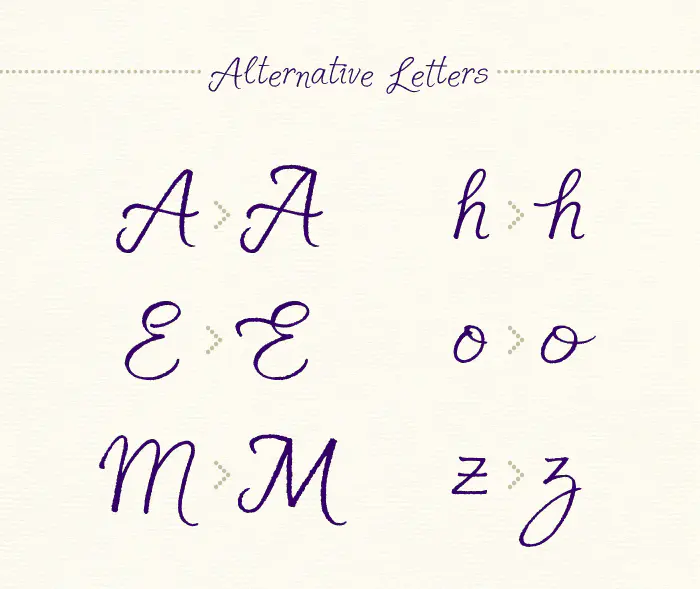 Alternative Letters
A > A
h > h
E > E
o > o
M > M
z > z